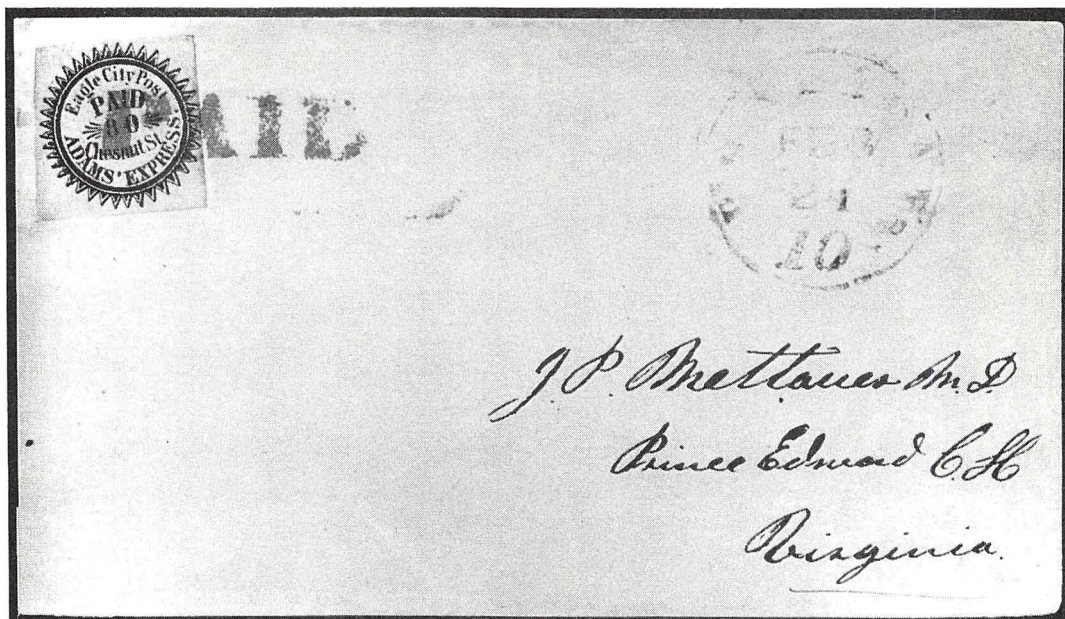 Eagle City Post
PAID
80
Chesnut St.
ADAMS' EXPRESS
AIL
FEB
24
10
J. P. Mettauer M.D.
Prince Edward C.H
Virginia.